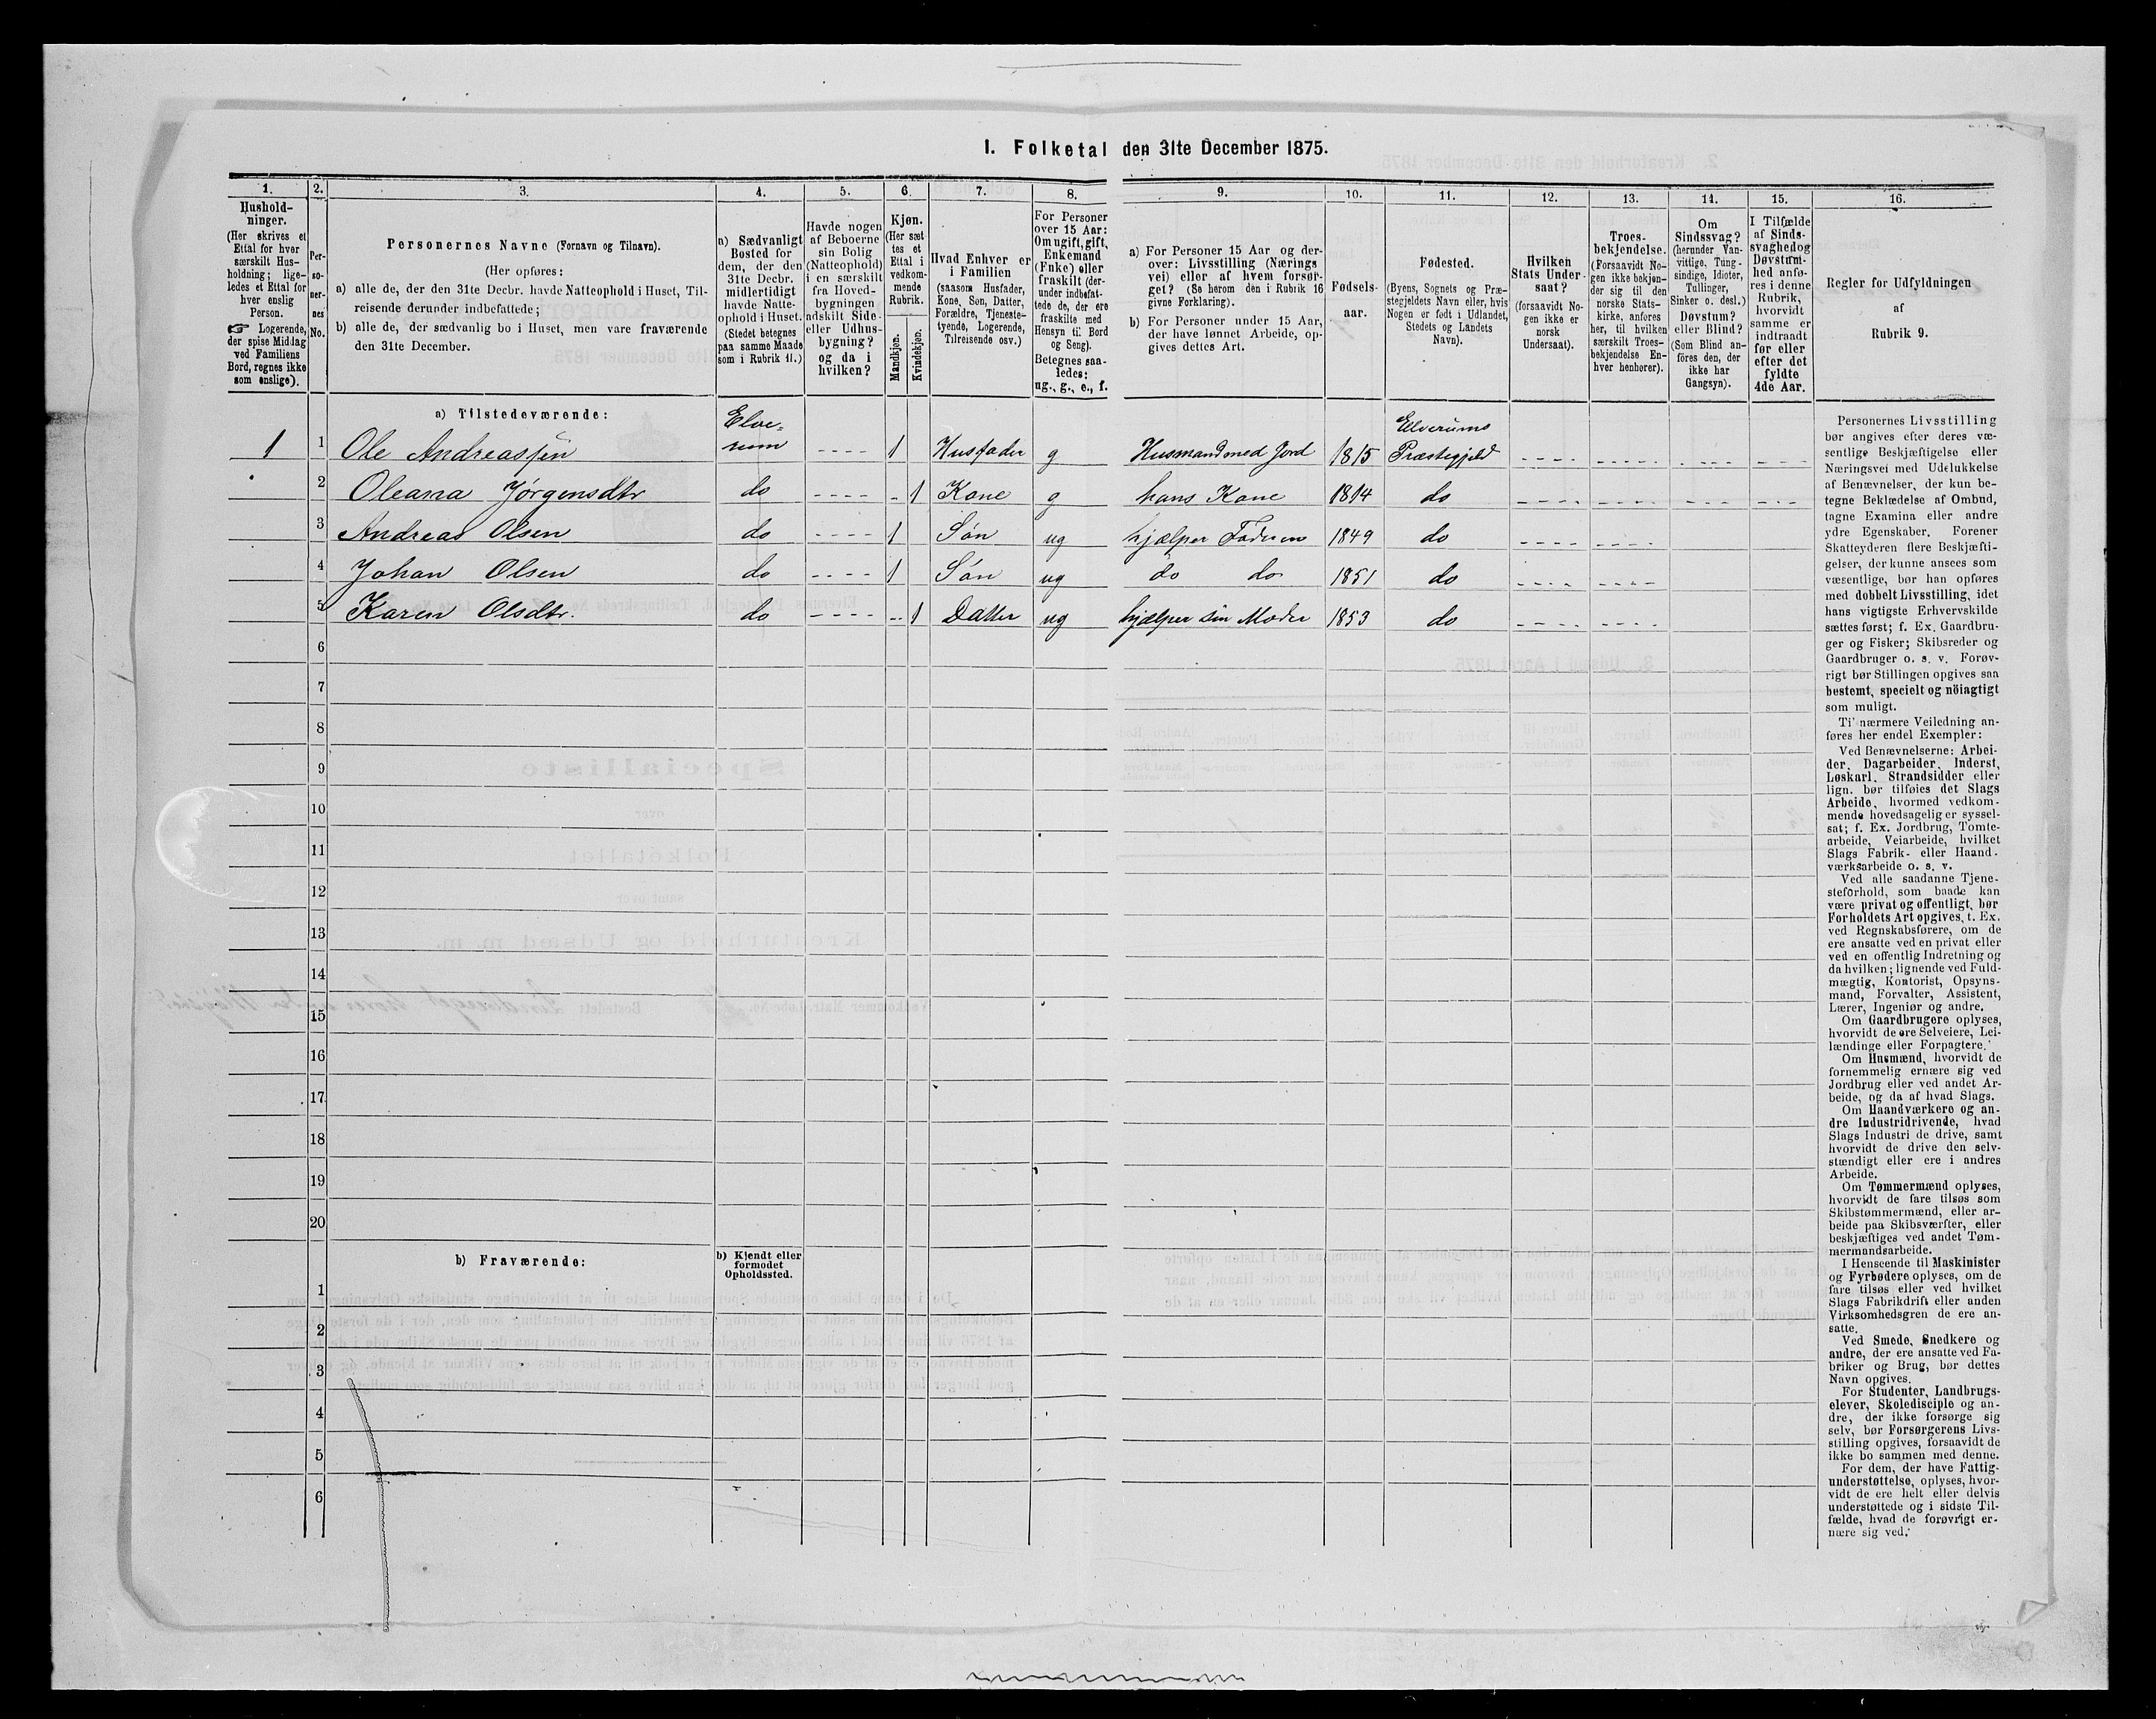 I. Folketal den 31te December 1875.
1. 2. 3. 4. 5. 6. 7. 8. 9. 10. 11. 12. 13. 14. 15. 16.
Hushold-
ninger.
(Her skrives et
Ettal for hver
særskilt Hus-
holdning; lige-
ledes et Ettal for
hver enslig
Person.
☞ Logerende,
der spise Middag
ved Familiens
Bord, regnes ikke
som enslige).
Per-
so-
ner-
nes
No.
Personernes Navne (Fornavn og Tilnavn).
(Her opføres:
a) alle de, der den 31te Decbr. havde Natteophold i Huset, Til-
reisende derunder indbefattede;
b) alle de, der sædvanlig bo i Huset, men vare fraværende
den 31te December.
a) Sædvanligt
Bosted for
dem, der den
31te Decbr.
midlertidigt
havde Natte-
ophold i Huset.
(Stedet betegnes
paa samme Maade
som i Rubrik 11.)
Havde nogen
af Beboerne
sin Bolig
(Natteophold)
i en særskilt
fra Hoved-
bygningen
adskilt Side-
eller Udhus-
bygning?
og da i
hvilken?
Kjøn.
(Her sæt
tes et
Ettal i
vedkom-
mende
Rubrik.
Mandkjøn.
Kvindekjøn.
Hvad Enhver er
i Familien
(saasom Husfader,
Kone, Søn, Datter,
Forældre, Tjeneste-
tyende, Logerende,
Tilreisende osv.)
For Personer
over 15 Aar:
Om ugift, gift,
Enkemand
(Enke) eller
fraskilt (der-
under indbefat-
tede de, der ere
fraskilte med
Hensyn til Bord
og Seng).
Betegnes saa-
ledes:
ug., g., e., f.
a) For Personer 15 Aar og der-
over: Livsstilling (Nærings
vei) eller af hvem forsør-
get? (Se herom den i Rubrik 16
givne Forklaring).
b) For Personer under 15 Aar,
der have lønnet Arbeide, op-
gives dettes Art.
Fødsels-
aar.
Fødested.
(Byens, Sognets og Præ-
stegjeldets Navn eller, hvis
Nogen er født i Udlandet,
Stedets og Landets
Navn).
Hvilken
Stats Under-
saat?
(forsaavidt No-
gen ikke er
norsk
Undersaat).
Troes-
bekjendelse.
(Forsaavidt No-
gen ikke bekjen-
der sig til den
norske Stats-
kirke, anføres
her, til hvilken
særskilt Troes-
bekjendelse En-
hver henhører).
Om
Sindssvag?
(herunder Van-
vittige, Tung-
sindige, Idioter,
Tullinger,
Sinker o. desl.)
Døvstum?
eller Blind?
(Som Blind an-
føres den, der
ikke har
Gangsyn).
I Tilfælde
af Sinds-
svaghed og
Døvstum-
hed anfø-
res i denne
Rubrik,
hvorvidt
samme er
indtraadt
før eller
efter det
fyldte
4de Aar.
Regler for Udfyldningen
af
Rubrik 9.
a) Tilstedeværende:
1 1 Ole Andreassen Elve=rum ---- 1 Husfader g Husmand med Jord 1815 Elverums Præstegjeld ---- ---- ---- ----
2 Oleana Jørgensdtr do ---- - 1 Kone g hans Kone 1814 do ---- ---- ---- ----
3 Andreas Olsen do ---- 1 Søn ug hjælper Faderen 1849 do ---- ----
4 Johan Olsen do ---- 1 Søn ug do do 1851 do ---- ----
5 Karen Olsdtr. do ---- -- 1 Datter ug hjælper sin Moder 1853 do ---- ----
6
7
8
9
10
11
12
13
14
15
16
17
18
19
20
b) Fraværende:
b) Kjendt eller
formodet
Opholdssted.
1
2
3
4
5
6
Personernes Livsstilling
bør angives efter deres væ-
sentlige Beskjæftigelse eller
Næringsvei med Udelukkelse
af Benævnelser, der kun be-
tegne Beklædelse af Ombud,
tagne Examina eller andre
ydre Egenskaber. Forener
Skatteyderen flere Beskjæfti-
gelser, der kunne ansees som
væsentlige, bør han opføres
med dobbelt Livsstilling, idet
hans vigtigste Erhvervskilde
sættes først; f. Ex. Gaardbru-
ger og Fisker; Skibsreder og
Gaardbruger o. s. v. Forøv-
rigt bør Stillingen opgives saa
bestemt, specielt og nöiagtigt
som muligt.
Ti' nærmere Veiledning an-
føres her endel Exempler:
Ved Benævnelserne: Arbei-
der, Dagarbeider, Inderst,
Løskarl, Strandsidder eller
lign. bør tilføies det Slags
Arbeide, hvormed vedkom-
mende hovedsagelig er syssel-
sat; f. Ex. Jordbrug, Tomte-
arbeide, Veiarbeide, hvilket
Slags Fabrik- eller Haand-
værksarbeide o. s. v.
Ved alle saadanne Tjene-
steforhold, som baade kan
være privat og offentligt, bør
Forholdets Art opgives, t. Ex.
ved Regnskabsførere, om de
ere ansatte ved en privat eller
ved en offentlig Indretning og
da hvilken; lignende ved Fuld-
mægtig, Kontorist, Opsyns-
mand, Forvalter, Assistent,
Lærer, Ingeniør og andre.
Om Gaardbrugere oplyses,
hvorvidt de ere Selveiere, Lei-
lændinge eller Forpagtere.
Om Husmænd, hvorvidt de
fornemmelig ernære sig ved
Jordbrug eller ved andet Ar-
beide, og da af hvad Slags.
Om Haandværkere og an-
dre Industridrivende, hvad
Slags Industri de drive, samt
hvorvidt de drive den selv-
stændigt eller ere i andres
Arbeide.
Om Tømmermænd oplyses,
hvorvidt de fare tilsøs som
Skibstømmermænd, eller ar-
beide paa Skibsværfter, eller
beskjæftiges ved andet Tøm-
mermandsarbeide.
I Henseende til Maskinister
og Fyrbødere oplyses, om de
fare tilsøs eller ved hvilket
Slags Fabrikdrift eller anden
Virksomhedsgren de ere an-
satte.
Ved Smede, Snedkere og
andre, der ere ansatte ved Fa-
briker og Brug, bør dettes
Navn opgives.
For Studenter, Landbrugs-
elever, Skoledisciple og an-
dre, der ikke forsørge sig
selv, bør Forsørgerens Livs-
stilling opgives, forsaavidt de
ikke bo sammen med denne.
For dem, der have Fattig-
understøttelse, oplyses, hvor-
vidt de ere helt eller delvis
understøttede og i sidste Til-
fælde, hvad de forøvrigt er-
nære sig ved.